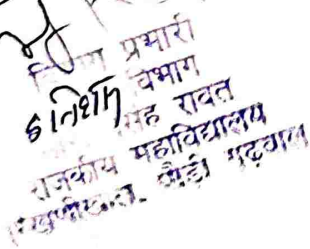 विभाग प्रभारी
इतिहास विभाग
सिंह रावत
राजकीय महाविद्यालय
पौड़ी गढ़वाल